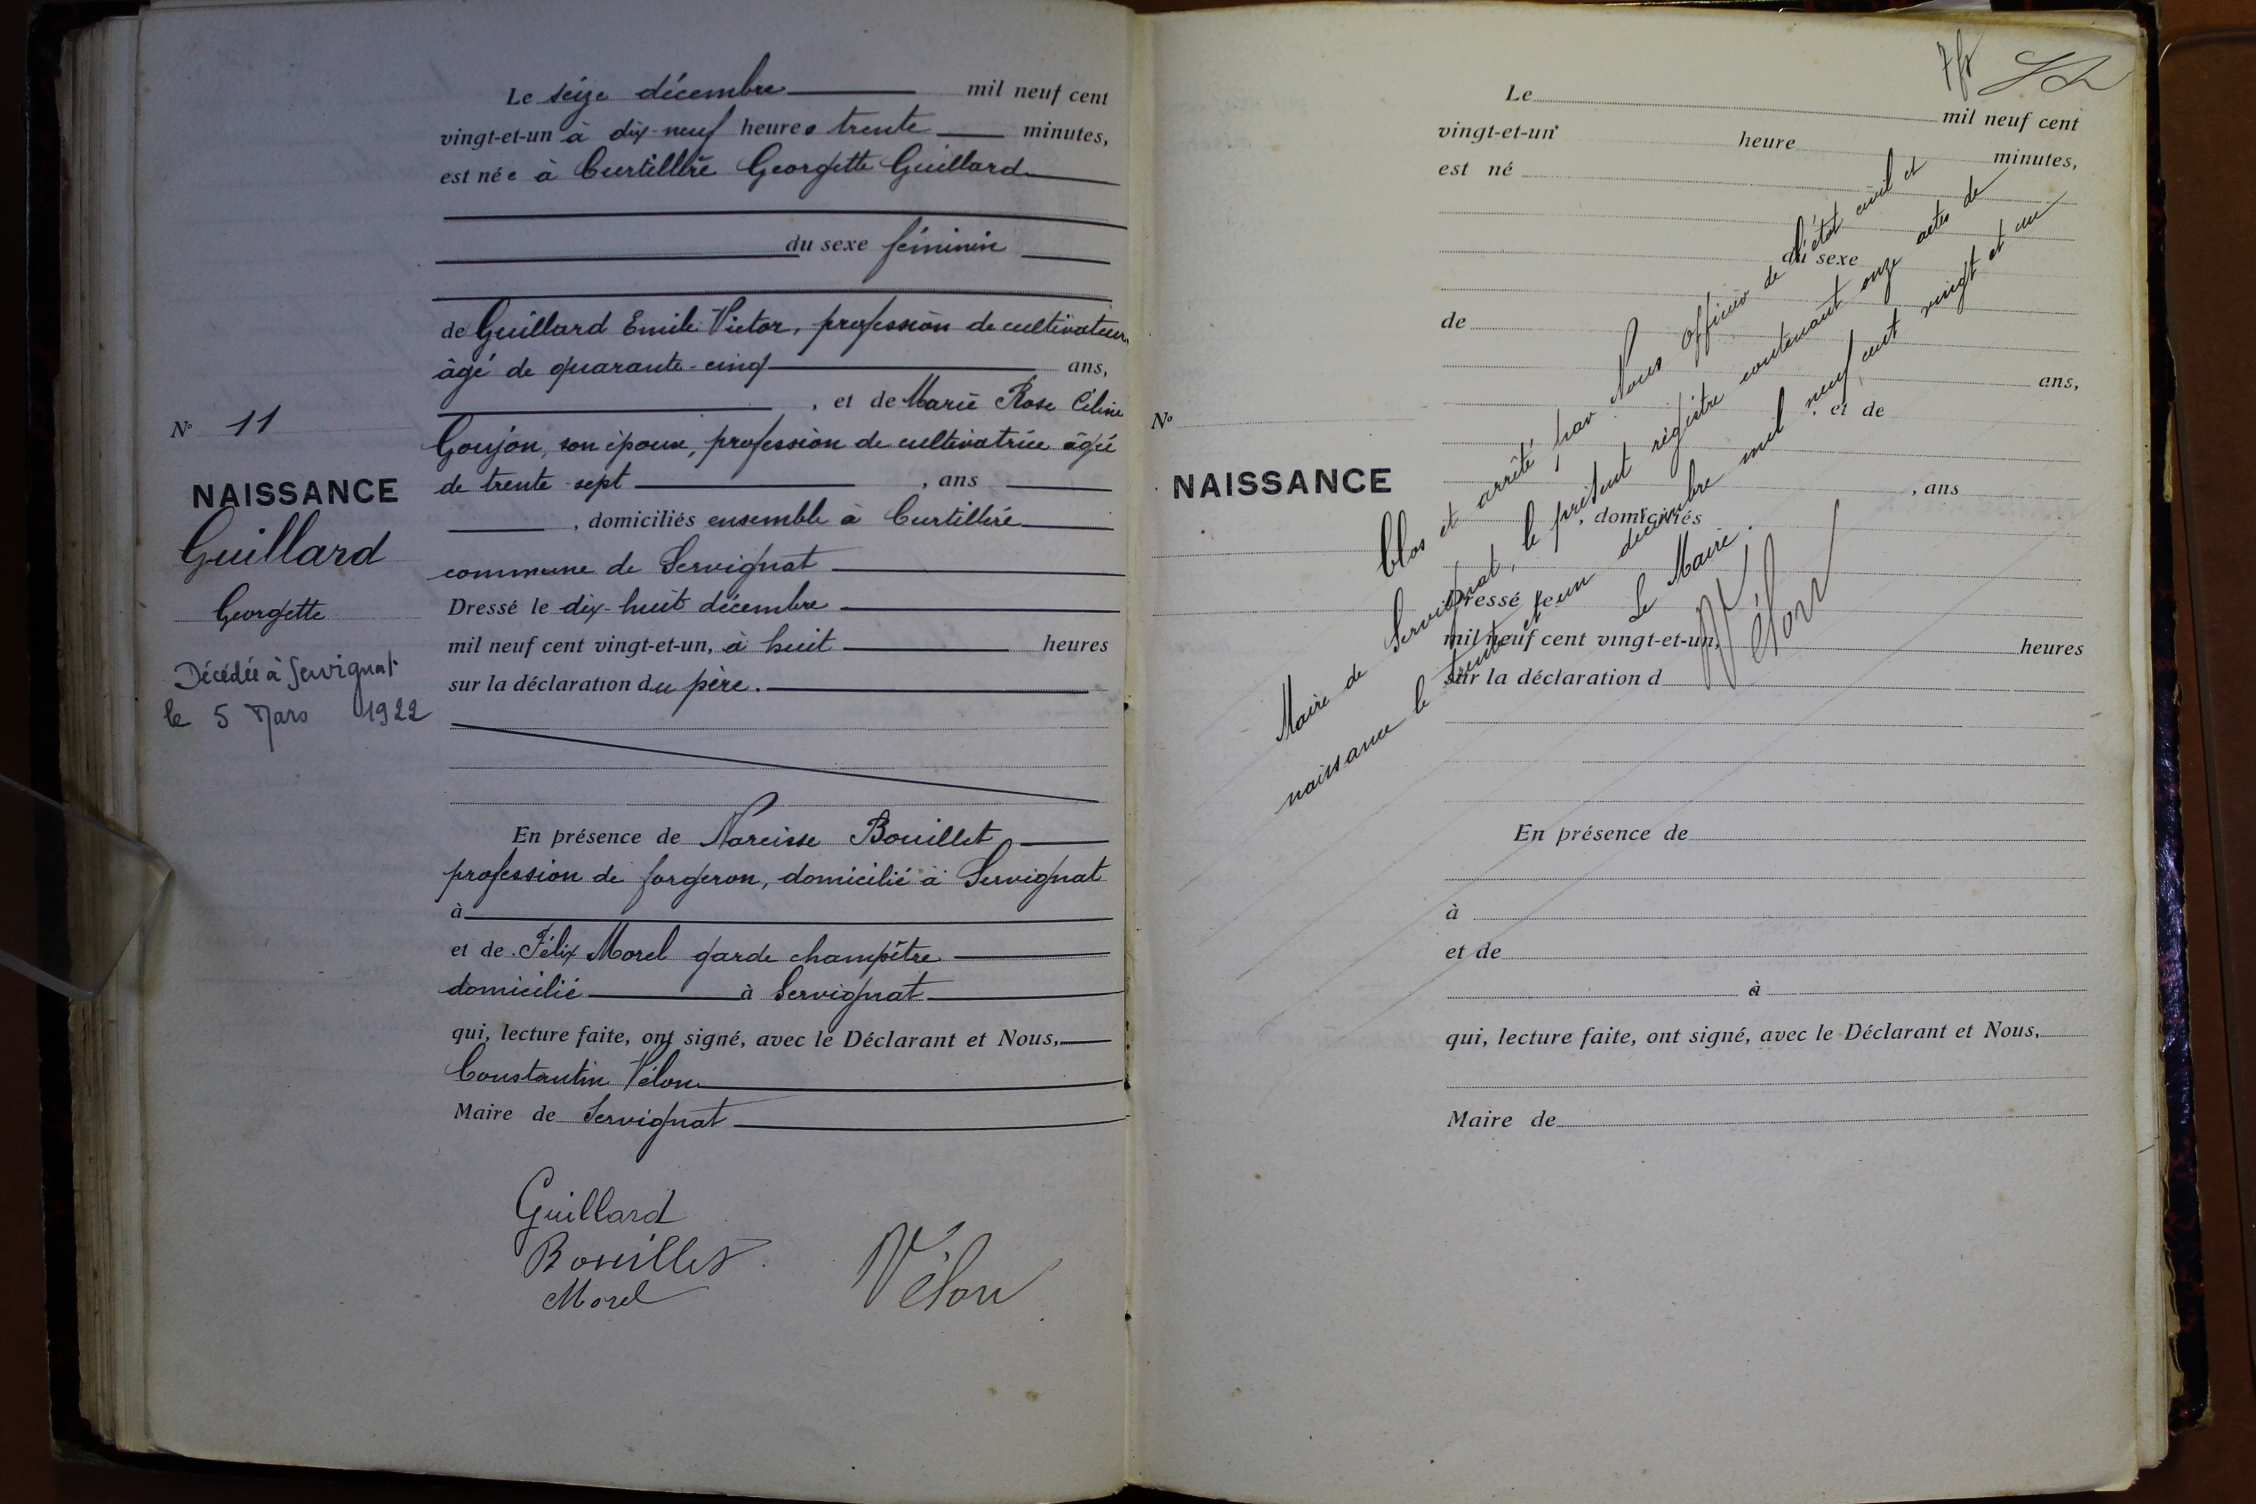 Le seize décembre mil neuf cent
vingt-et-un à dix-neuf heures trente minutes,
est née à Curtillère Georgette Guillard
du sexe féminin
de Guillard Emile Victor, profession de cultivateur
âgé de quarante-cinq ans,
, et de Marie Rose Céline
Goujon, son épouse, profession de cultivatrice âgée
de trente-sept , ans
, domiciliés ensemble à Curtillère
commune de Servignat
Dressé le dix-huit décembre
mil neuf cent vingt-et-un, à huit heures
sur la déclaration du père.
En présence de Narcisse Bouillet
profession de forgeron, domicilié à Servignat
à
et de Félix Morel garde champêtre
domicilié à Servignat
qui, lecture faite, ont signé, avec le Déclarant et Nous,
Constantin Vélon
Maire de Servignat
Guillard
Bouillet
Morel
Vélon
N° 11
NAISSANCE
Guillard
Georgette
Décédée à Servignat
le 5 Mars 1922
Le mil neuf cent
vingt-et-un heure minutes,
est né
du sexe
de
ans,
, et de
, ans
, domiciliés
Dressé le
mil neuf cent vingt-et-un, heures
sur la déclaration d
En présence de
à
et de
à
qui, lecture faite, ont signé, avec le Déclarant et Nous,
Maire de
N°
NAISSANCE
Clos et arrêté par Nous Officier de l'état civil et
Maire de Servignat, le présent régistre contenant onze actes de
naissance le trente et un décembre mil neuf cent vingt et un
Le Maire.
Vélon